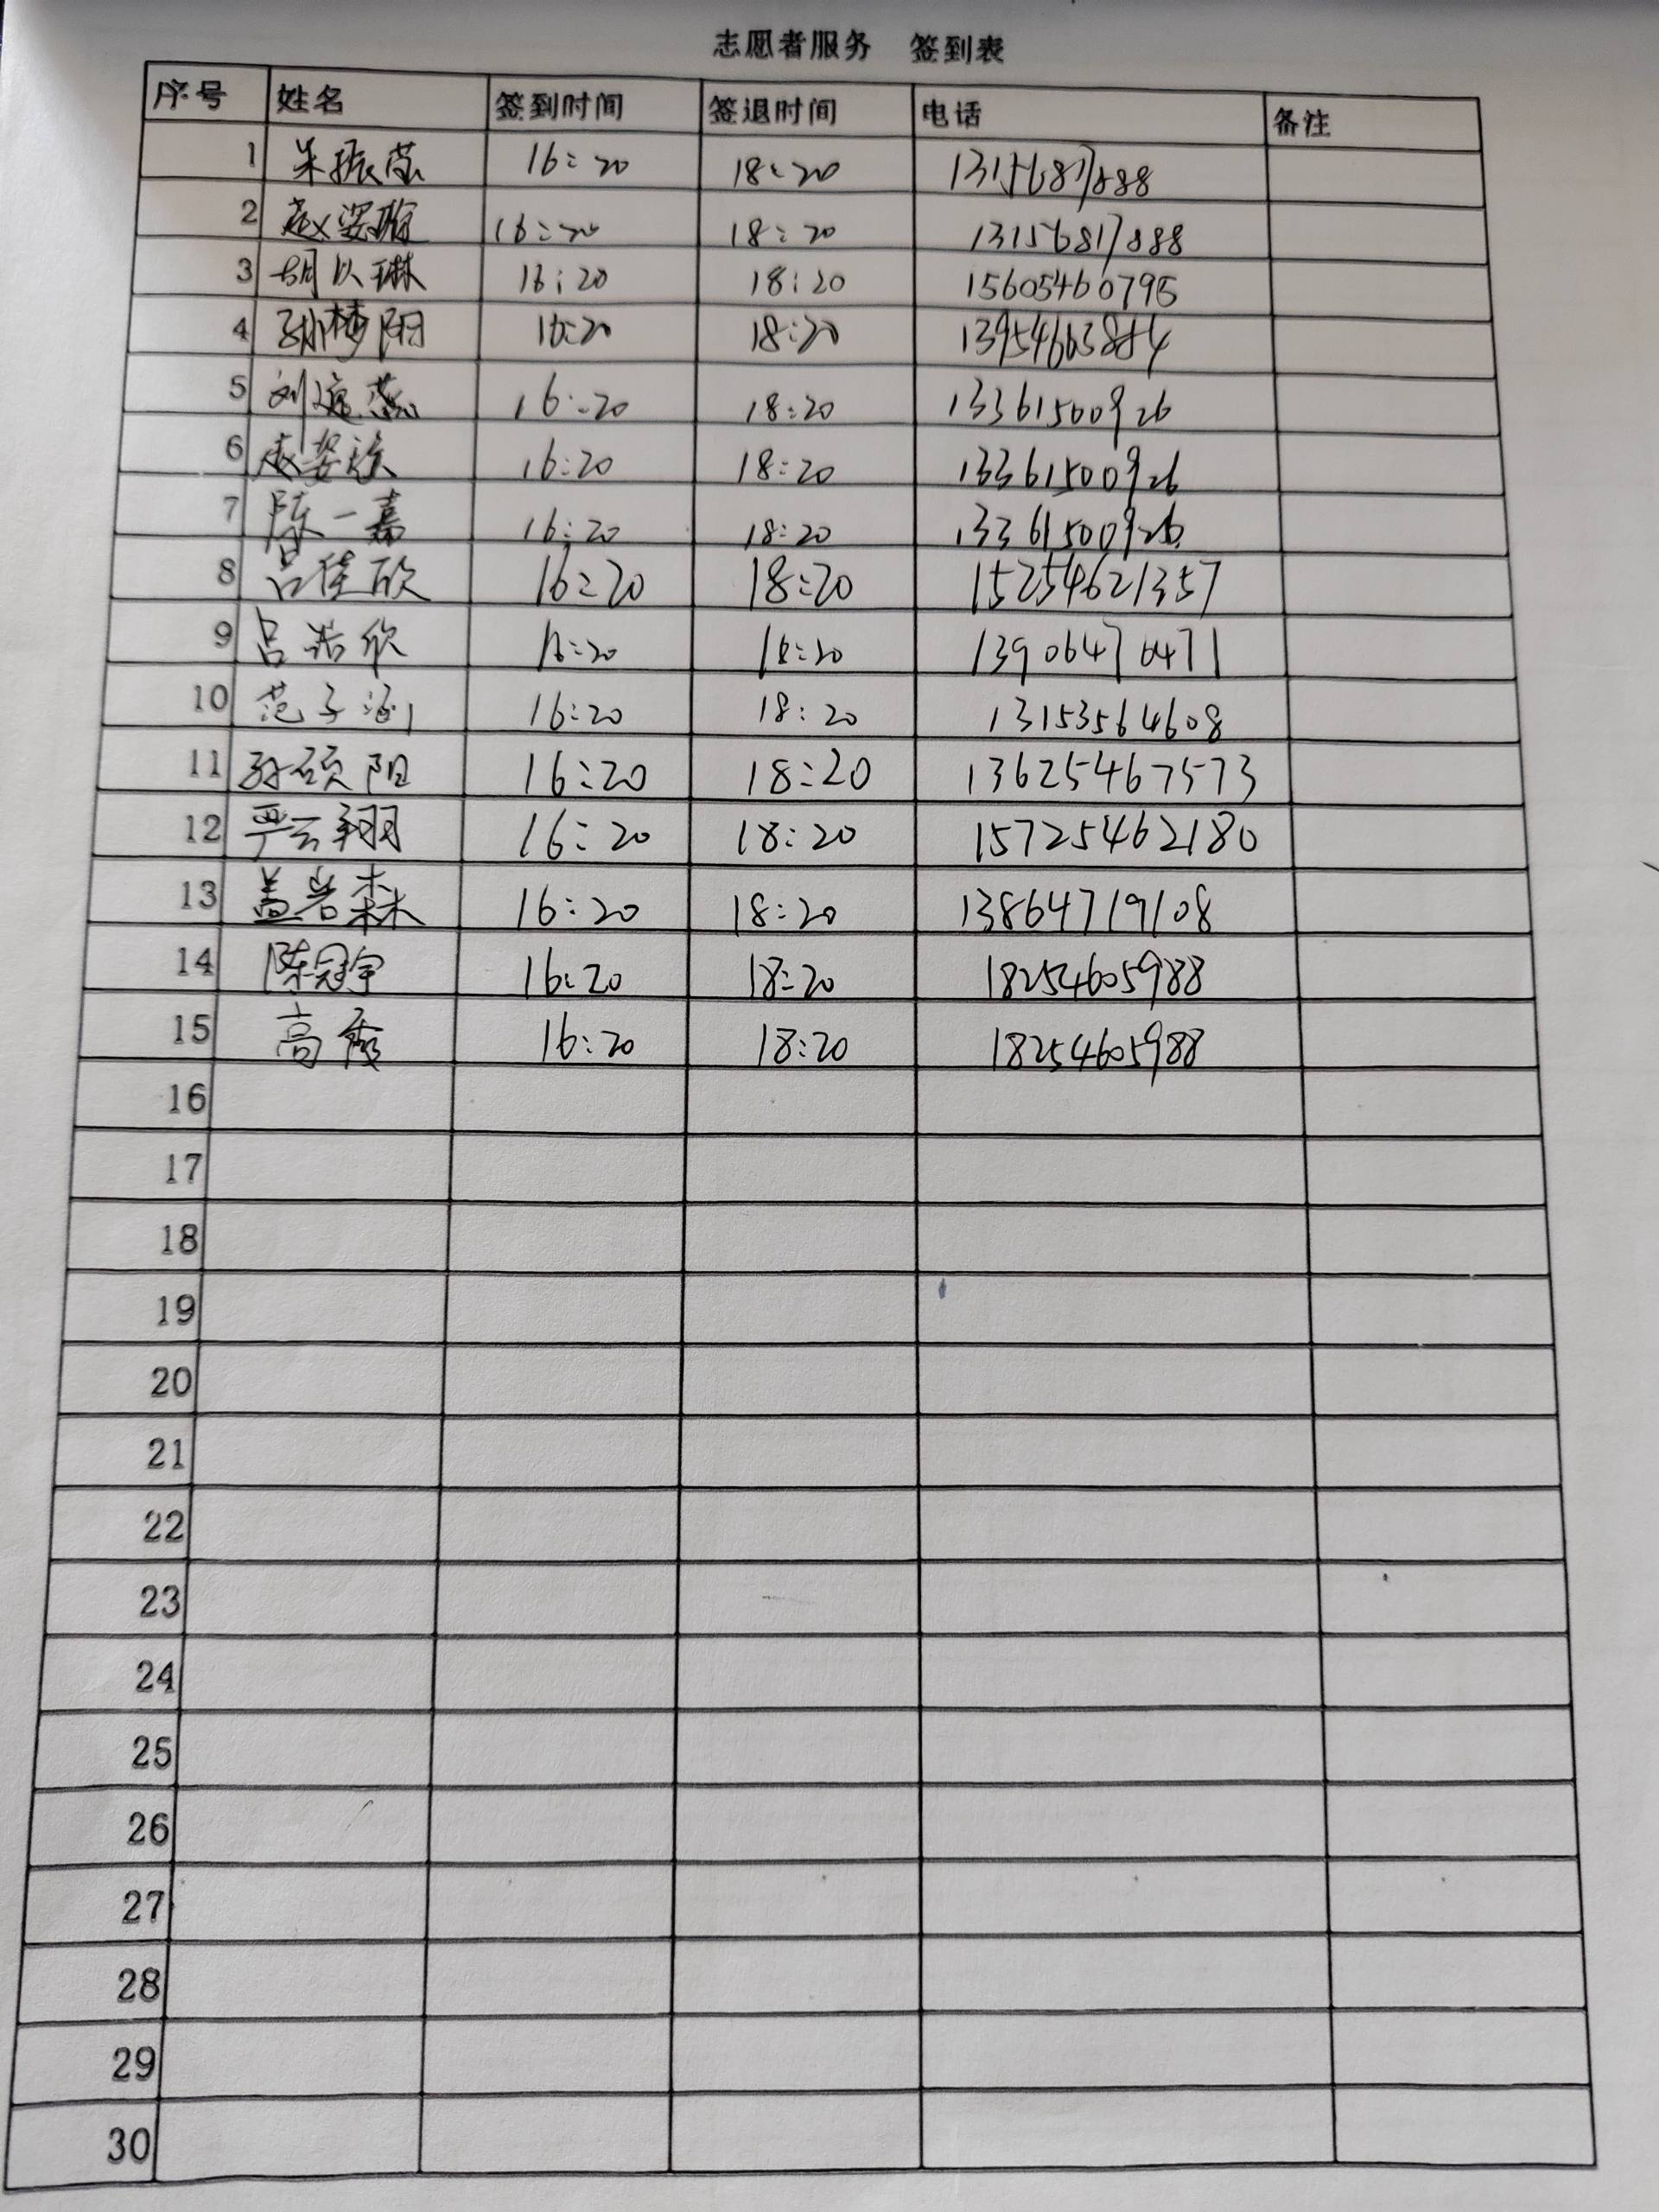 志愿者服务 签到表
序号 姓名 签到时间 签退时间 电话 备注
1 朱振 16:20 18:20
2 赵梁 16:20 18:20 13156817888
3 胡以琳 16:20 18:20 15605460795
4 孙梦阳 16:20 18:20
5 刘 16:20 18:20 13361500926
6 赵姿 16:20 18:20 13361500926
7 陈一嘉 16:20 18:20 13361500926
8 吕佳欣 16:20 18:20 15254621357
9 吕浩欣 16:20 18:20 13906476471
10 范子涵 16:20 18:20 13153564608
11 孙硕阳 16:20 18:20 13625467573
12 严云翔 16:20 18:20 15725462180
13 盖岩森 16:20 18:20 13864719108
14 陈冠宇 16:20 18:20 18254605988
15 高秀 16:20 18:20 18254605988
16
17
18
19
20
21
22
23
24
25
26
27
28
29
30